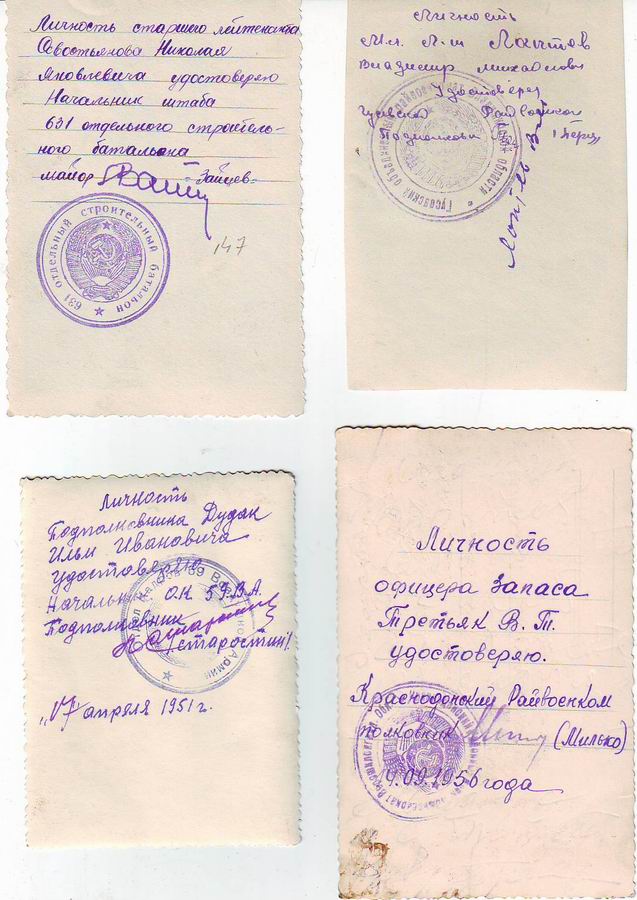 Личность старшего лейтенанта
Севостьянова Николая
Яковлевича удостоверяю
Начальник штаба
631 отдельного строитель-
ного батальона
майор -Зайцев-
147
631 отдельный строительный батальон
Личность
Мл. Л-т Лаптов
Владимир Михайлович
Удостоверяю
Подполковник
Гусевский объединенный
области
Личность
Подполковника Дудак
Ильи Ивановича
удостоверяю
Начальн О.К 59.В.А.
Подполковник
/старостин/.
"17 апреля 1951 г.
Личность
офицера запаса
Третьяк В. Т.
удостоверяю.
Краснодонский Райвоенком
полковник (Милько)
14.09.1956 года